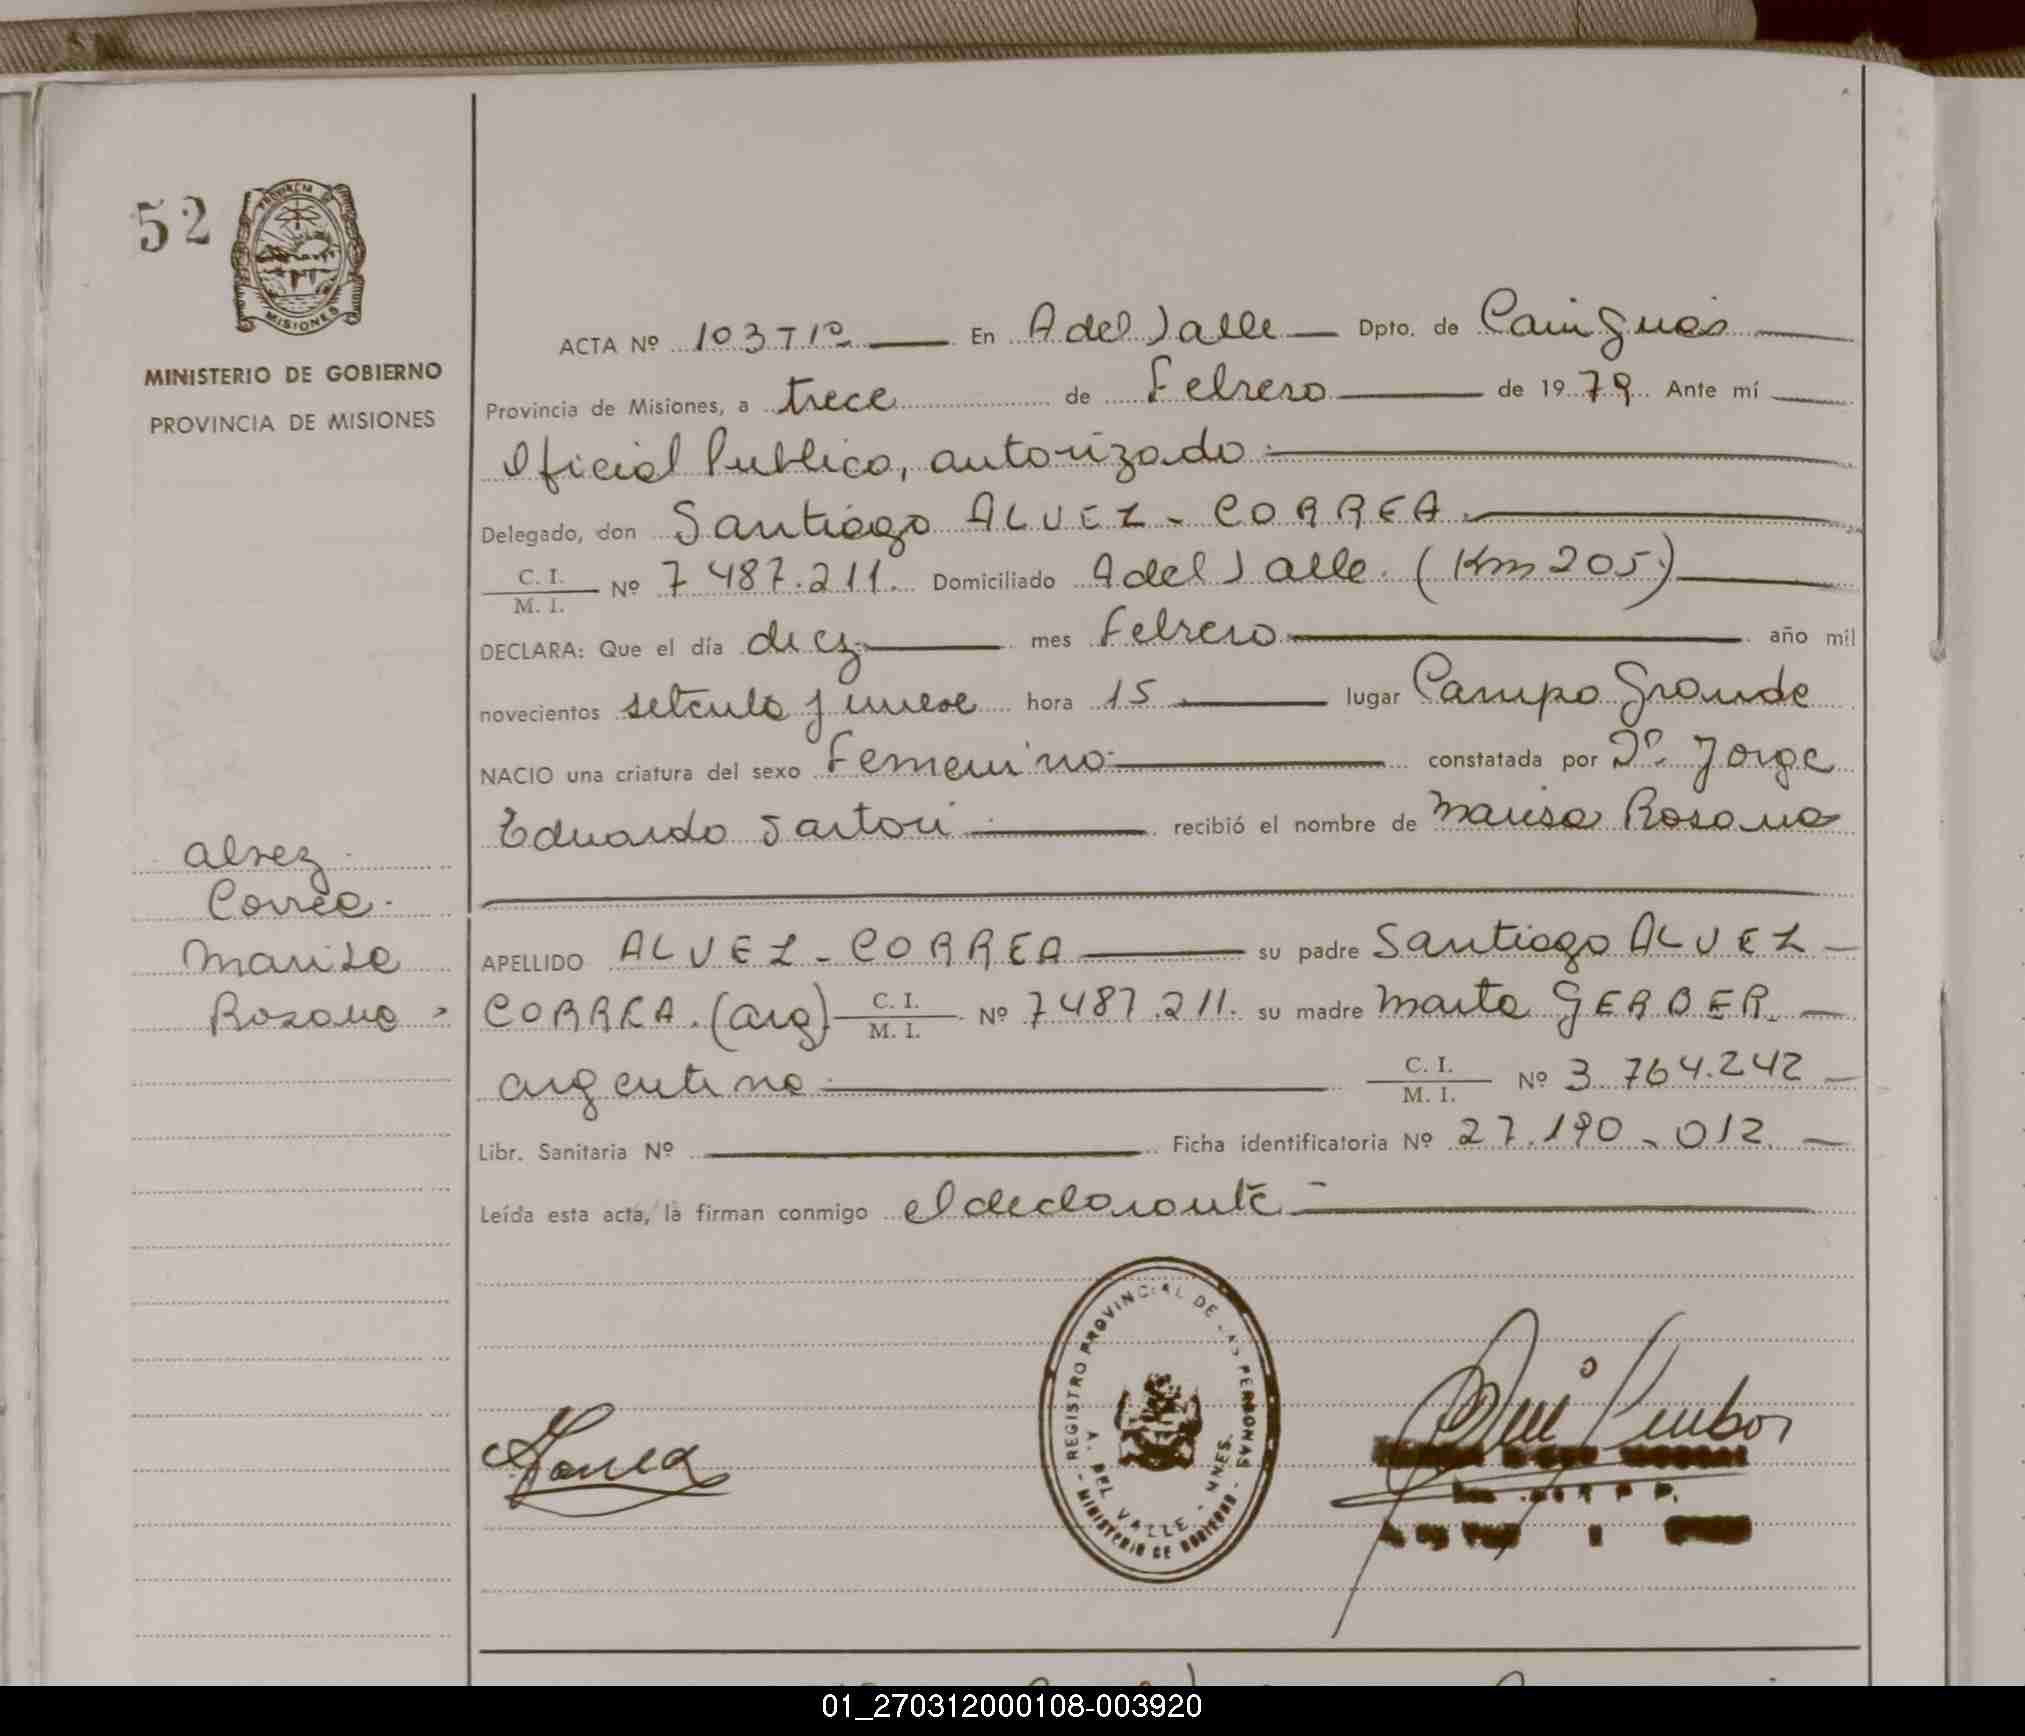 52
PROVINCIA DE
MISIONES
MINISTERIO DE GOBIERNO
PROVINCIA DE MISIONES
ACTA Nº 103 T 1º En A del Valle Dpto. de Cainguas
Provincia de Misiones, a trece de Febrero de 1979 Ante mí
Oficial Publico, autorizado
Delegado, don Santiago ALVEZ - CORREA
C. I.
M. I. Nº 7487.211. Domiciliado A del Valle. (Km 205)
DECLARA: Que el día diez mes Febrero año mil
novecientos setenta y nueve hora 15 lugar Campo Grande
NACIO una criatura del sexo Femenino constatada por Dr. Jorge
Eduardo Sartori recibió el nombre de Marisa Rosana
Alvez
Correa.
Marisa
Rosana
APELLIDO ALVEZ - CORREA su padre Santiago ALVEZ -
CORREA. (arg) C. I. M. I. Nº 7487.211. su madre Marta GERBER
argentina C. I. M. I. Nº 3 764.242
Libr. Sanitaria Nº Ficha identificatoria Nº 27.190-012
Leída esta acta, la firman conmigo el declarante
REGISTRO PROVINCIAL DE LAS PERSONAS
A. DEL VALLE - MNES.
MINISTERIO DE GOBIERNO
01_270312000108-003920